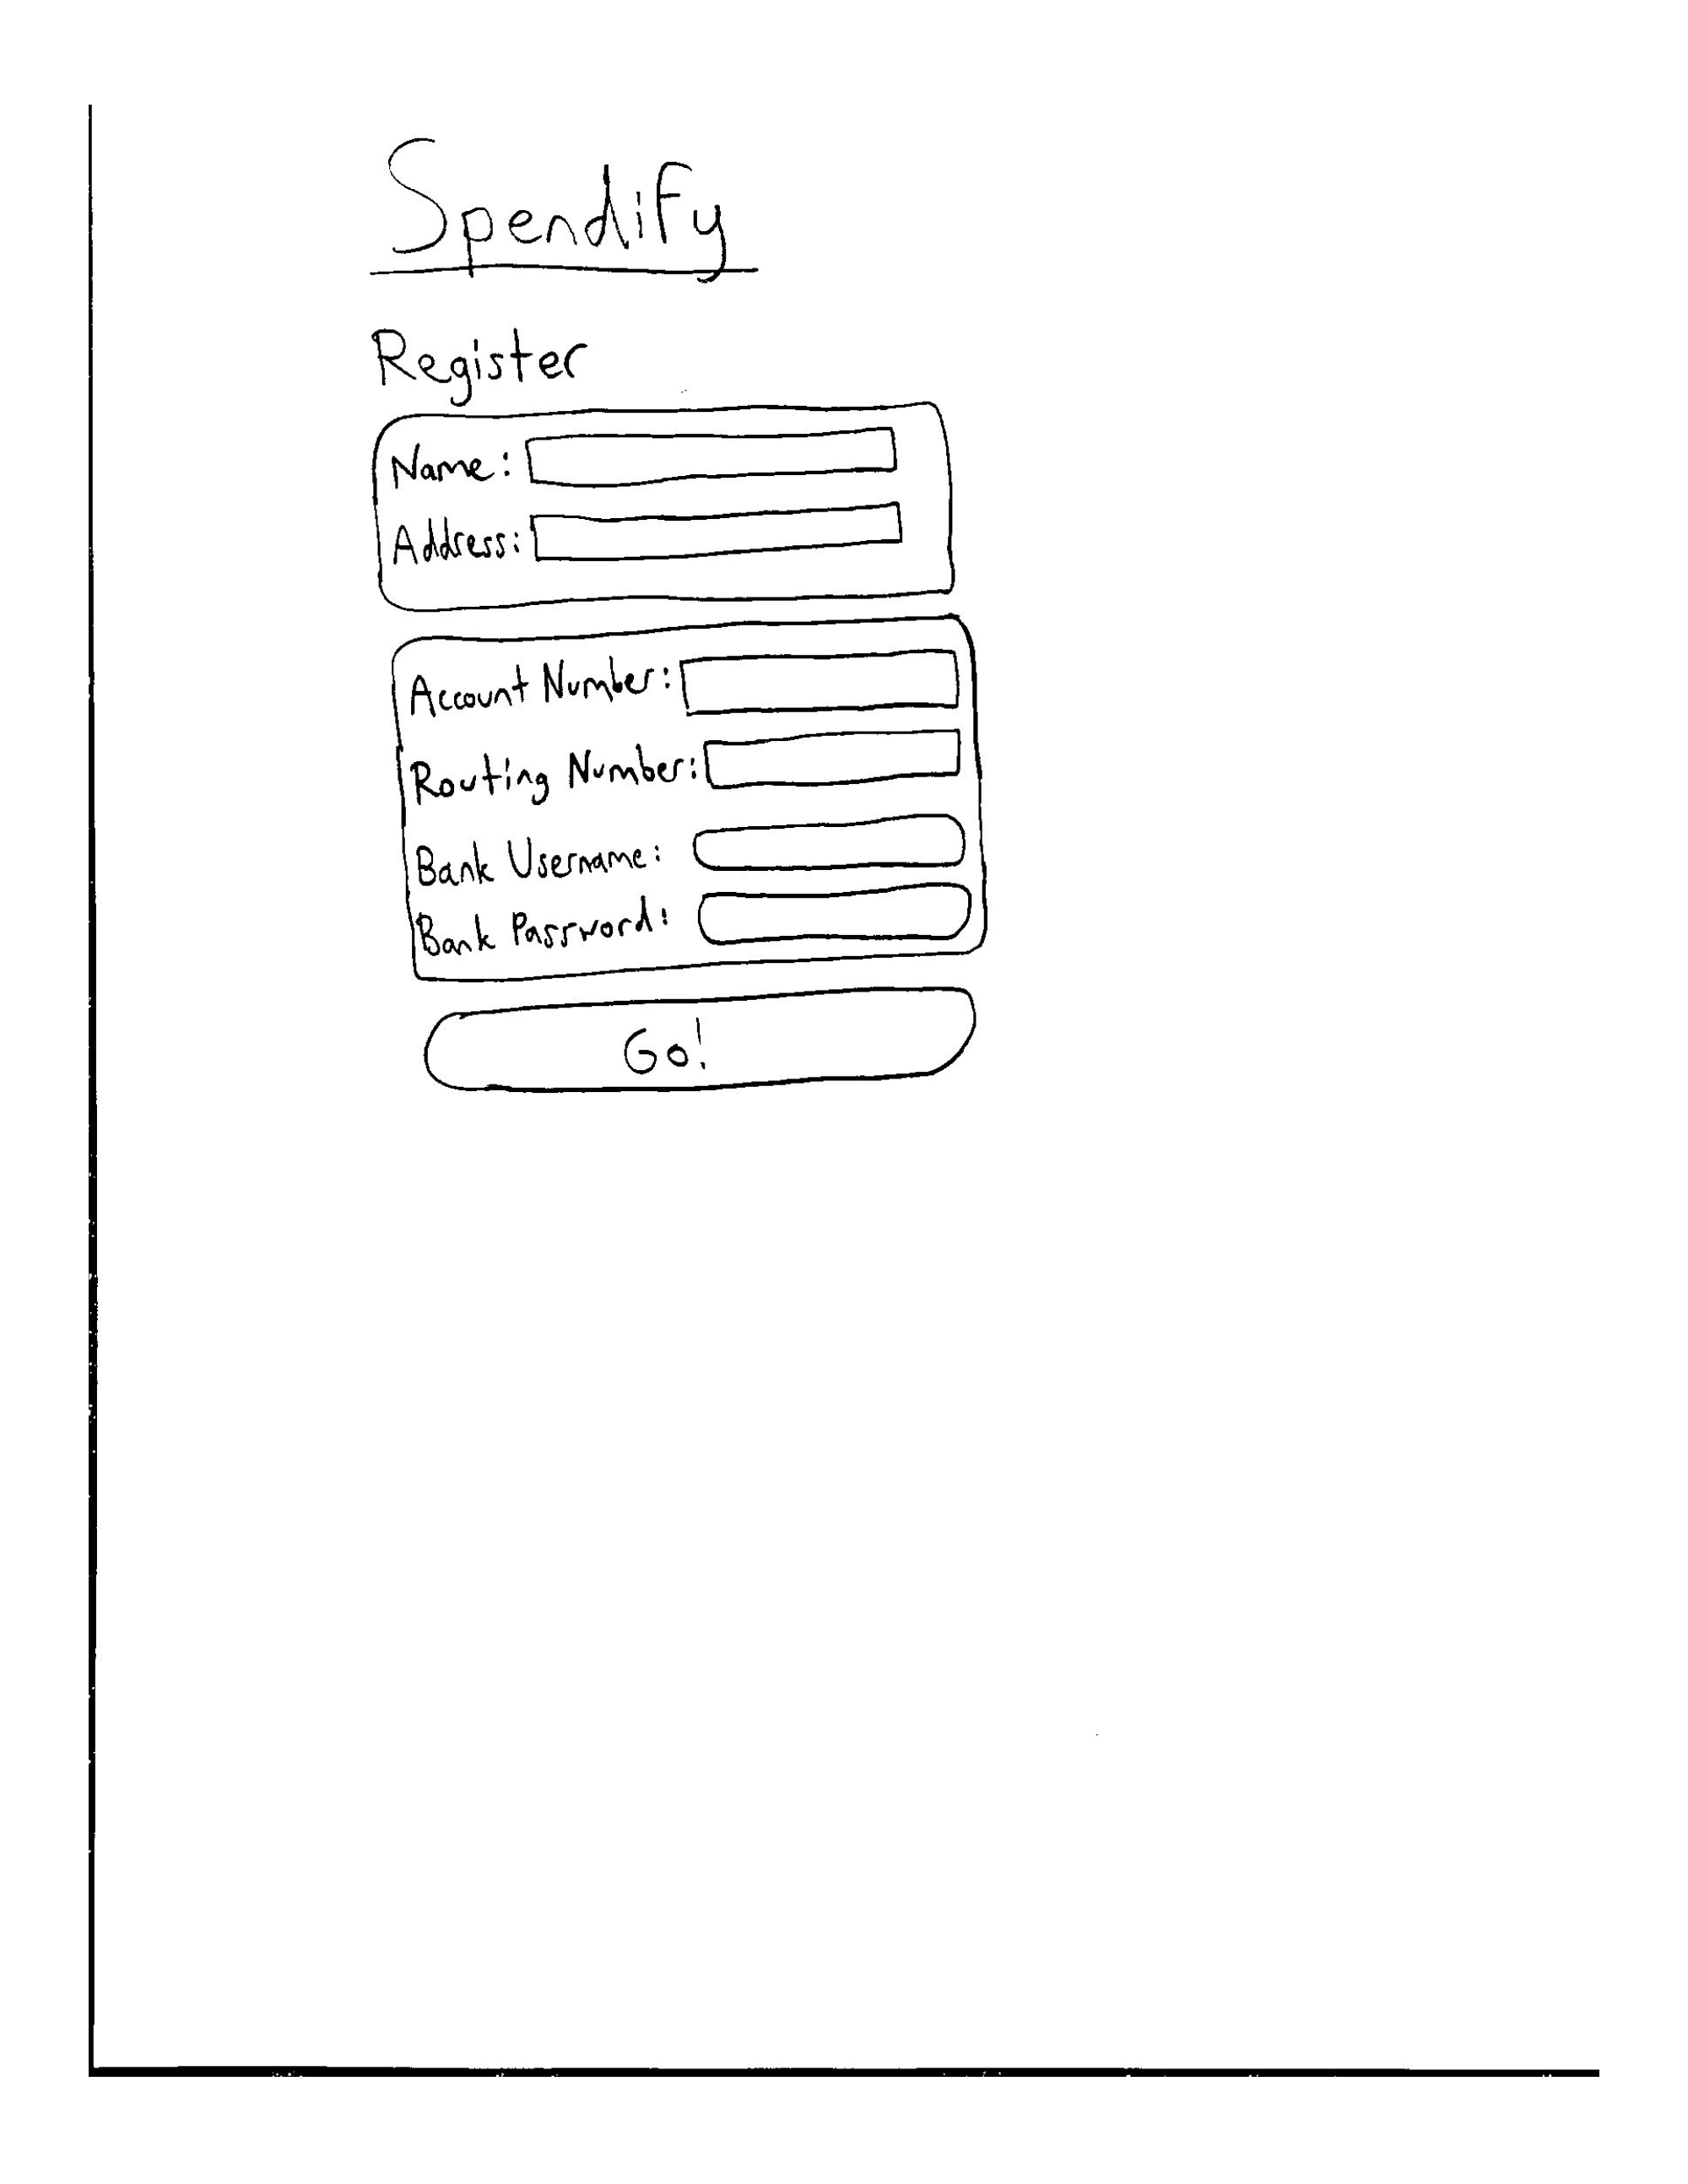 Spendify
Register
Name:
Address:
Account Number:
Routing Number:
Bank Username:
Bank Password:
Go!